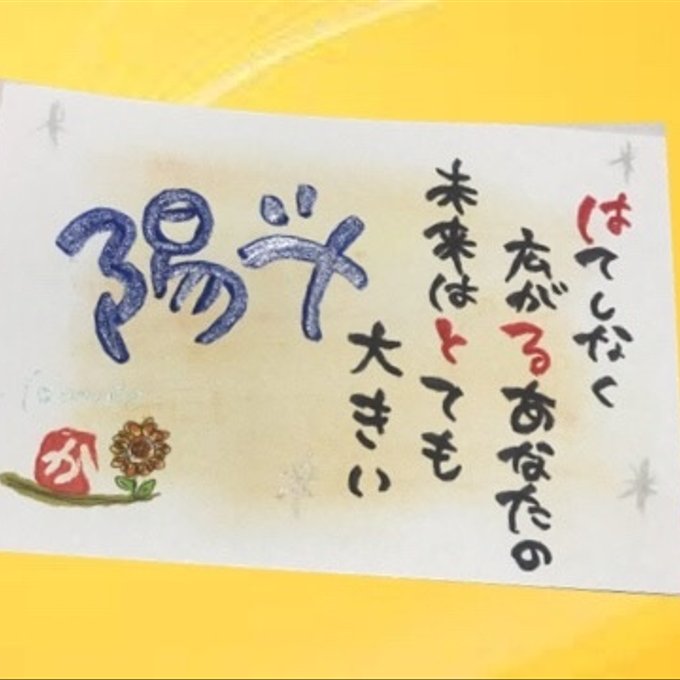 はてしなく
広がるあなたの
未来はとても
大きい
陽斗
か